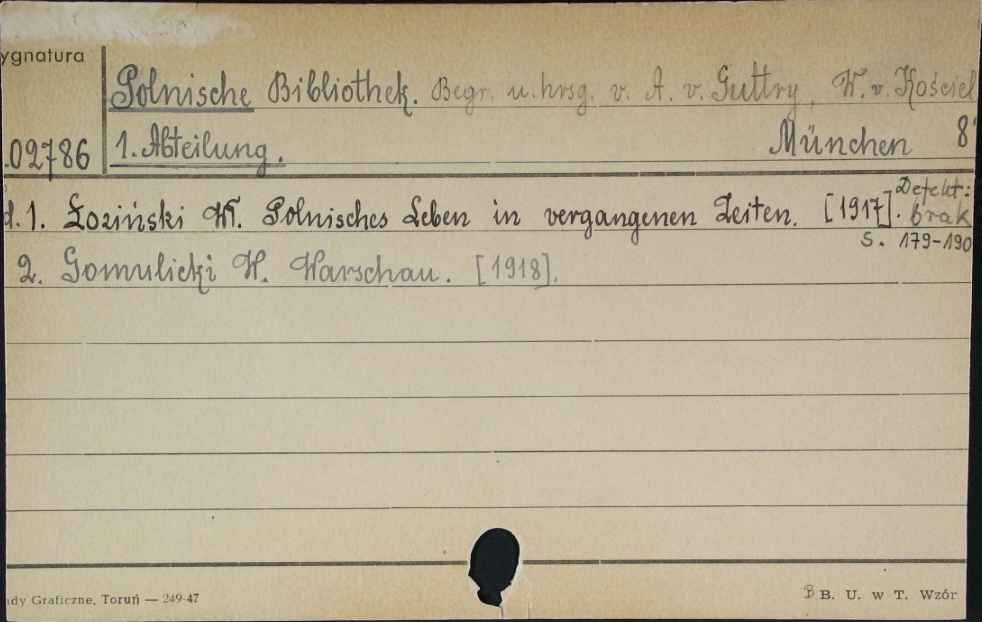 ygnatura
Polnische Bibliothek. Begr. u. hrsg. v. A. v. Guttry, W. v. Kościel
.02786 1. Abteilung. München 8°
d. 1. Łoziński W. Polnisches Leben in vergangenen Zeiten. [1917]. Defekt: brak
s. 179-190
2. Gomulicki W. Warschau. [1918].
ady Graficzne, Toruń — 249-47
B. U. w T. Wzór